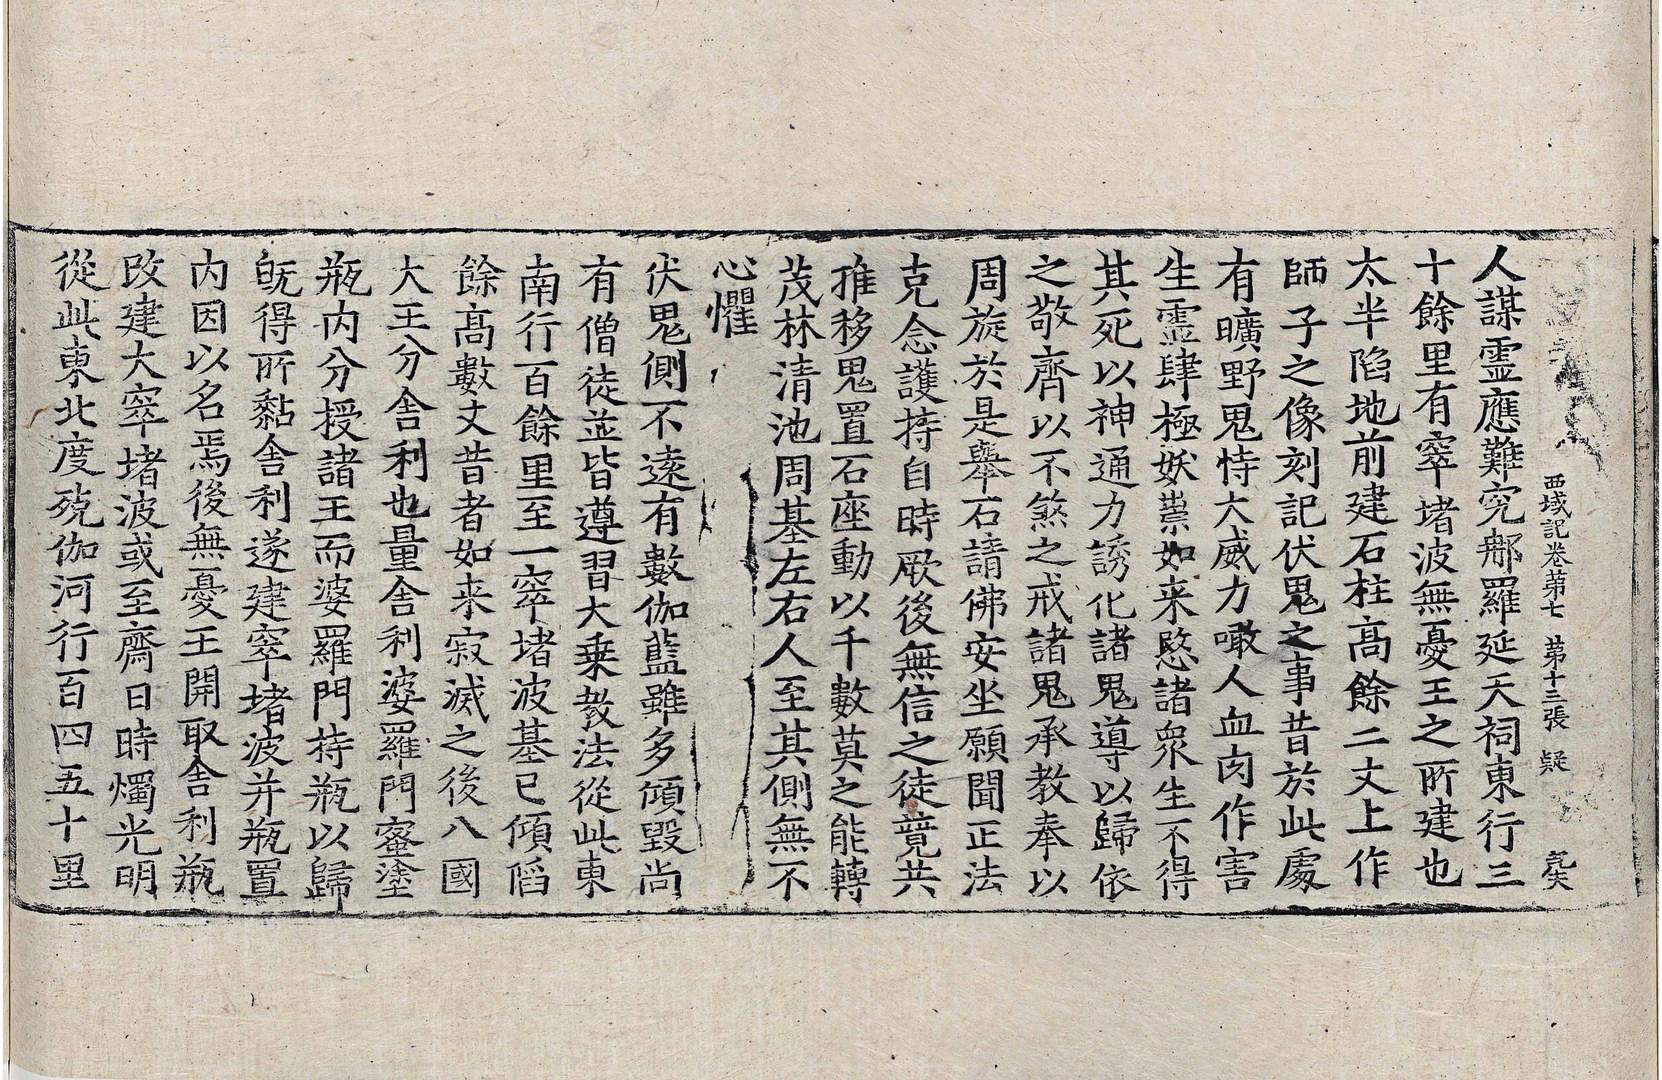 西域記卷苐七　苐十三張　疑
人謀霊應難究䣝羅延天祠東行三
十餘里有窣堵波無憂王之所建也
太半陷地前建石柱高餘二丈上作
師子之像刻記伏鬼之事昔於此處
有曠野鬼恃大威力噉人血肉作害
生霊肆極妖祟如来愍諸衆生不得
其死以神通力誘化諸鬼導以歸依
之敬齊以不煞之戒諸鬼承教奉以
周旋於是舉石請佛安坐願聞正法
克念護持自時厥後無信之徒竟共
推移鬼置石座動以千數莫之能轉
茂林清池周基左右人至其側無不
心懼
伏鬼側不遠有數伽藍雖多傾毀尚
有僧徒並皆遵習大乗教法從此東
南行百餘里至一窣堵波基已傾陷
餘高數丈昔者如来寂滅之後八國
大王分舍利也量舍利婆羅門蜜塗
瓶内分授諸王而婆羅門持瓶以歸
既得所黏舍利遂建窣堵波并瓶置
内因以名焉後無憂王開取舍利瓶
改建大窣堵波或至齋日時燭光明
從此東北度殑伽河行百四五十里